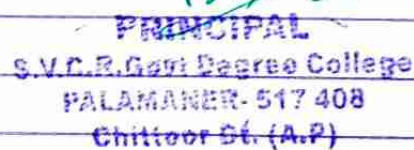 PRINCIPAL
S.V.C.R.Govt Degree College
PALAMANER- 517 408
Chittoor Dt. (A.P)